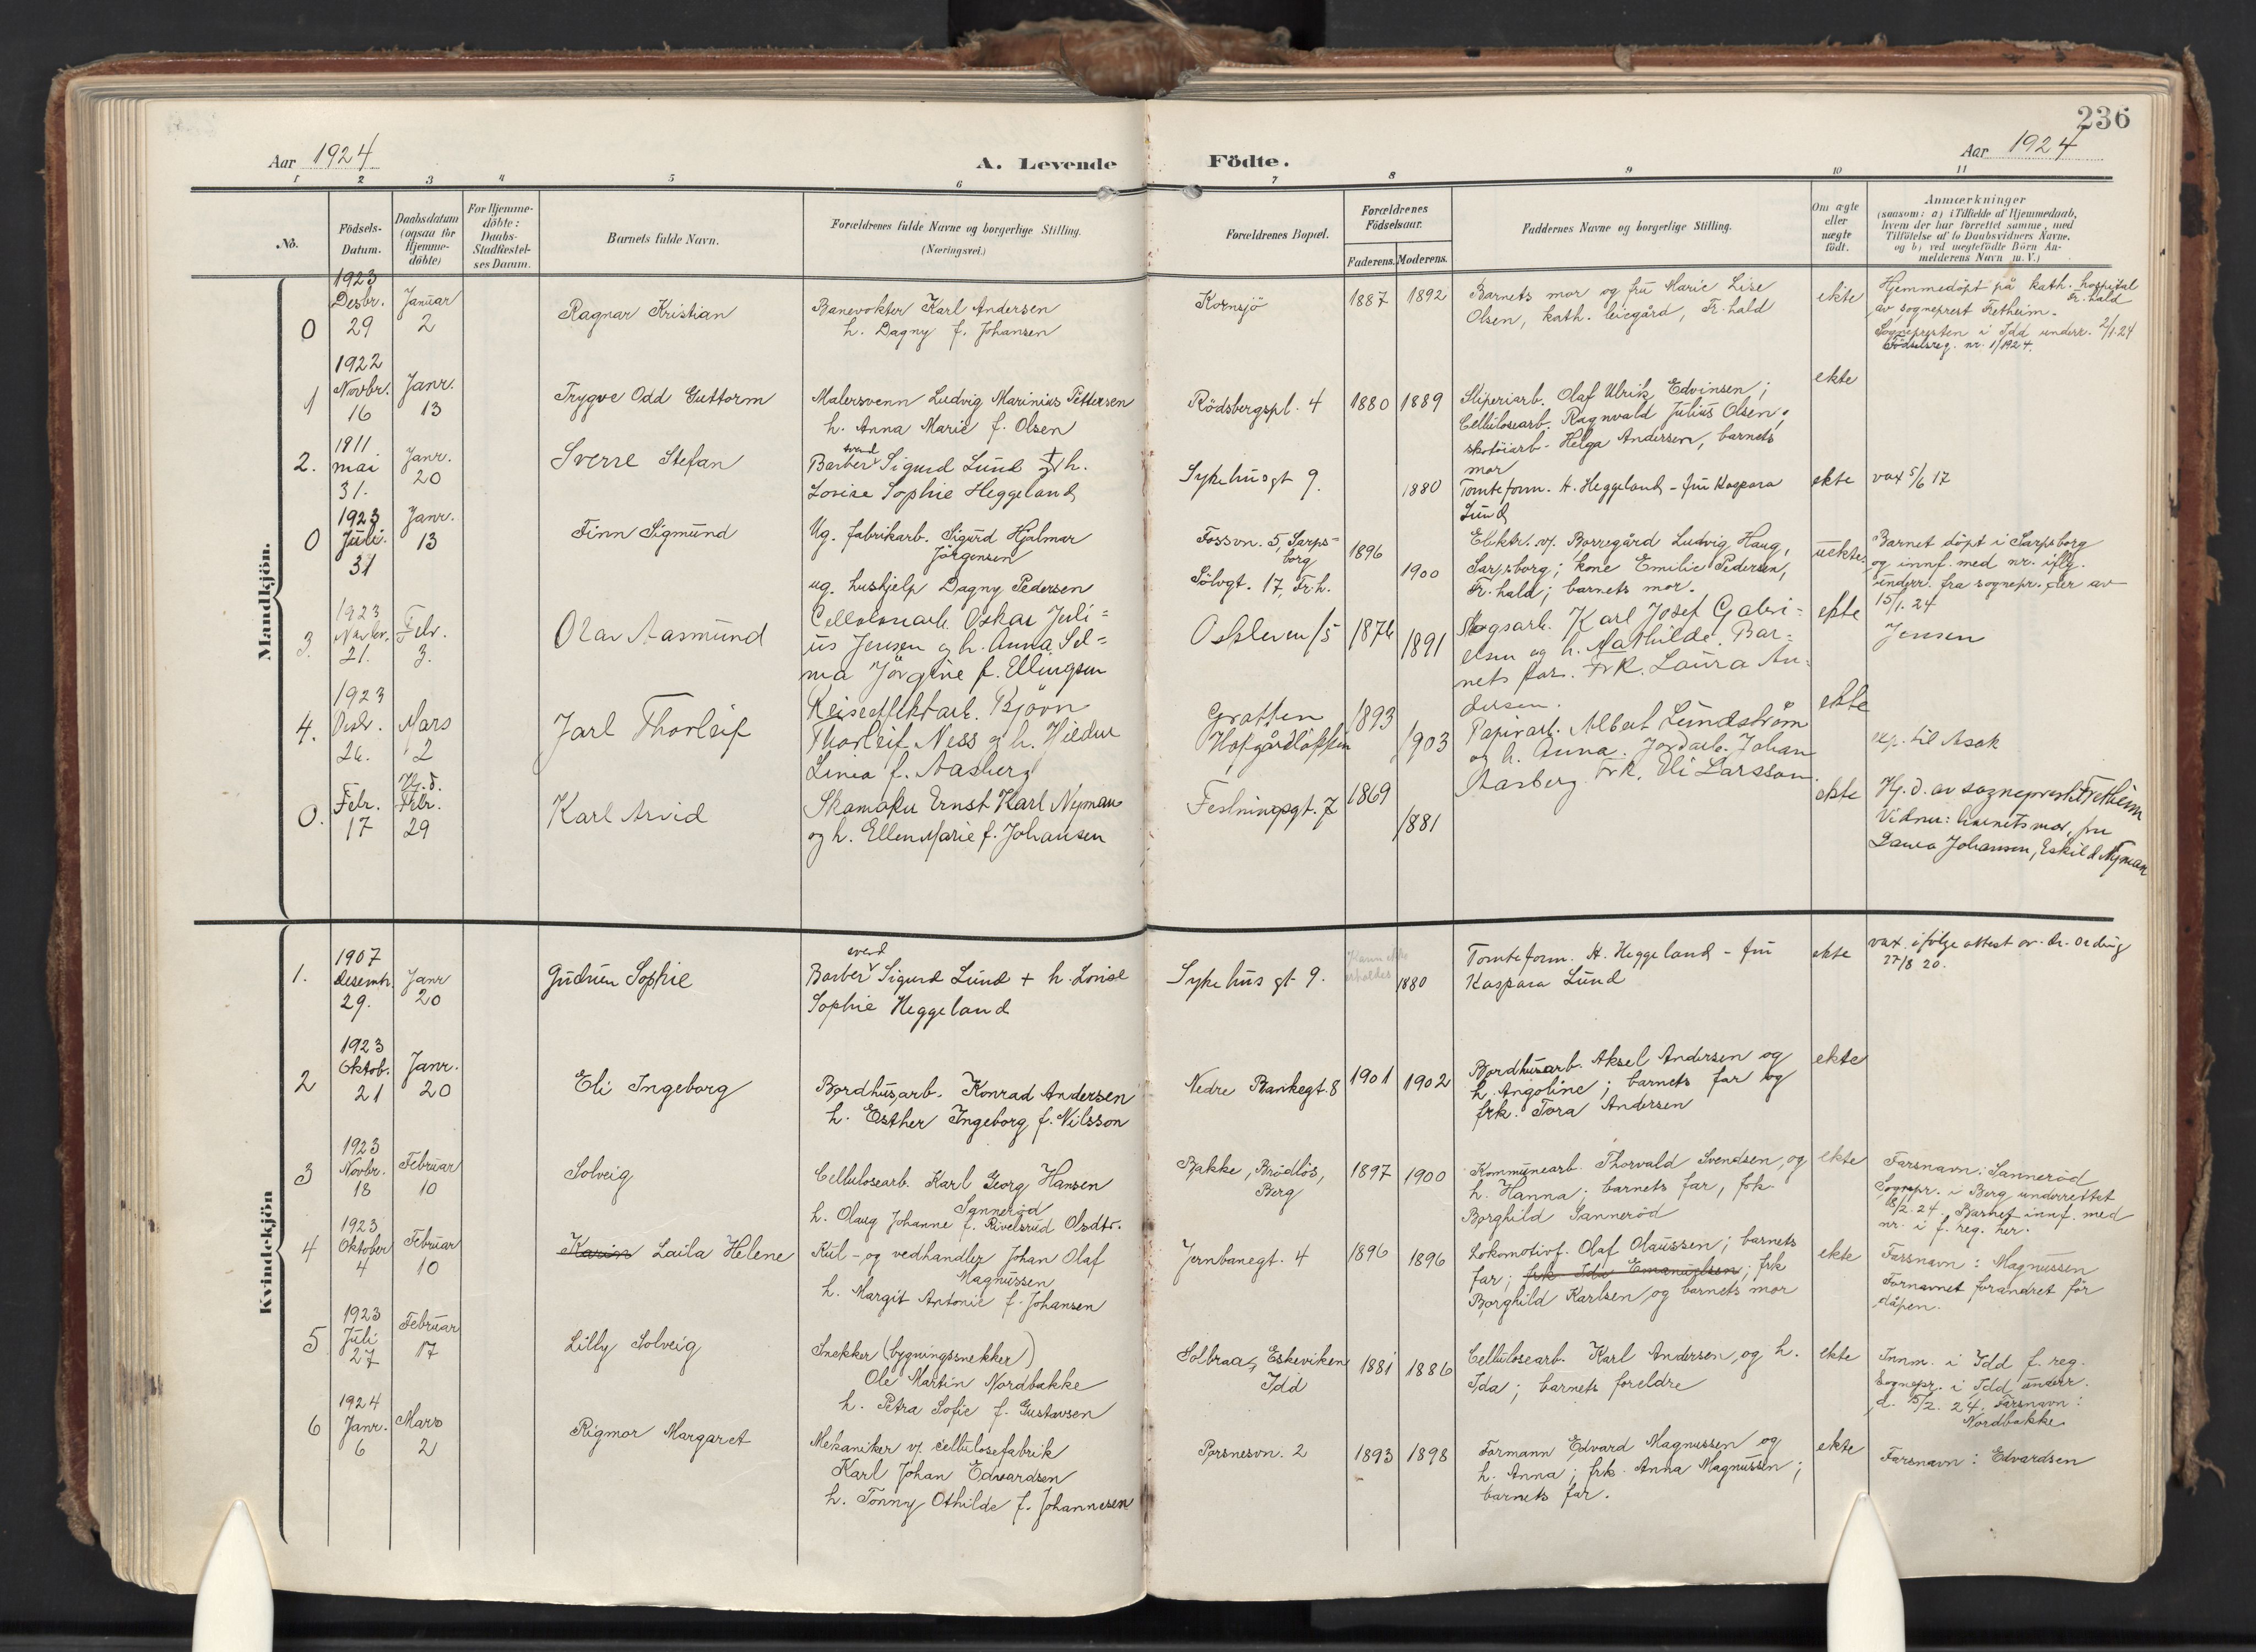 236
Aar 1924
A. Levende Födte.
Aar 1924
1 2 3 4 5 6 7 8 9 10 11
No.
Födsels-
Datum.
Daabsdatum
(ogsaa for
Hjemme-
döbte)
For Hjemme-
döbte:
Daabs-
Stadfæstel-
ses Datum.
Barnets fulde Navn.
Forældrenes fulde Navne og borgerlige Stilling.
(Næringsvei.)
Forældrenes Bopæl.
Forældrenes
Födselsaar.
Faderens.
Moderens.
Faddernes Navne og borgerlige Stilling.
Om ægte
eller
uægte
født.
Anmærkninger
(saasom: a) i Tilfælde af Hjemmedaab,
hvem der har forrettet samme, med
Tilföielse af to Daabsvidners Navne,
og b) ved uægtefödte Börn An-
melderens Navn m. V.)
Mandkjön.
0
1923
Desbr.
29
Januar
2
Ragnar Kristian
Banevokter Karl Andersen
h. Dagny f. Johansen
Kornsjö
1887
1892
Barnets mor og fru Marie Lise
Olsen, kath. leiegård, Fr.hald
ekte
Hjemmedöpt på kath. hospital
Fr.hald
av sogneprest Fretheim.
Sognepresten i Idd underr. 2/1.24
Födselsreg. nr. 1/1924.
1
1922
Novbr.
16
Janr.
13
Trygve Odd Guttorm
Malersvenn Ludvig Marinius Pettersen
h. Anna Marie f. Olsen
Rödsbergspl. 4
1880
1889
Sliperiarb. Olaf Ulrik Edvinsen;
Cellulosearb. Ragnvald Julius Olsen;
skotöiarb. Helga Andersen, barnets
mor
ekte
2.
1911
mai
31.
Janr.
20
Sverre Stefan
svend
Barber Sigurd Lund + h.
Lovise Sophie Heggeland
Sykehusgt 9.
1880
Tomteform. A. Heggeland - fru Kaspara
Lund
ekte
vax 5/6 17
0
1923
Juli.
31
Janr.
13
Finn Sigmund
Ug. fabrikarb. Sigurd Hjalmar
Jörgensen
ug. hushjelp Dagny Pedersen
Fossvn. 5, Sarps-
borg
Sölvgt. 17, Fr.h.
1896
1900
Elektr. v/ Borregård Ludvig Haug,
Sarpsborg; kone Emilie Pedersen,
Fr.hald; barnets mor.
uekte
Barnet döpt i Sarpsborg
og innf. med nr. iflg.
underr. fra sognepr. der av
15/1.24
3.
1923
Novbr.
21.
Febr.
3.
Olav Aasmund
Cellolosearb. Oskar Juli=
us Jensen og h. Anna Sel=
ma Jörgine f. Ellingsen
Oskleven 15
1876
1891
Skogsarb. Karl Josef Gabri-
elsen og h. Mathilde. Bar-
nets far. Frk. Laura An-
dersen.
ekte
Jensen
4.
1923
Desbr.
26.
Mars
2
Jarl Thorleif
Reiseeffektarb. Björn
Thorleif Ness og h. Hildur
Linea f. Aasberg
Gratten
Hofgårdlökken
1893
1903
Papirarb. Albert Lundström
og h. Anna. Jordarb. Johan
Aasberg. Frk. Eli Larsson.
ekte
up. til Asak
0.
Febr.
17
Hj.d.
Febr.
29
Karl Arvid
Skomaker Ernst Karl Nyman
og h. Ellen Marie f. Johansen
Festningsgt. 7
1869
1881
ekte
Hj. d. av sogneprest Fretheim
Vidner: barnets mor, fru
Laura Johansen, Eskild Nyman
Kvindekjön
1.
1907
desembr.
29.
Janr
20
Gudrun Sophie
svend
Barber Sigurd Lund + h Lovise
Sophie Heggeland
Sykehus gt 9.
Kann ikke
erholdes
1880
Tomteform. A. Heggeland - fru
Kaspara Lund
ekte
vax. ifölge attest av dr. Ording
27/8 20.
2
1923
Oktob.
21
Janr.
20
Eli Ingeborg
Bordhusarb. Konrad Andersen
h. Esther Ingeborg f. Nilsson
Nedre Bankegt. 8
1901
1902
Bordhusarb. Aksel Andersen og
h. Angoline; barnets far og
frk. Tora Andersen
ekte
3
1923
Novbr.
18
Februar
10
Solveig
Cellulosearb. Karl Georg Hansen
Sannerød
h. Olaug Johanne f. Rivelsrud Olsdtr.
Bakke, Brödlös,
Berg
1897
1900
Kommunearb. Thorvald Svendsen, og
h. Hanna; barnets far, frk.
Borghild Sanneröd
ekte
Farsnavn: Sanneröd
Sognepr. i Berg underrettet
18/2.24. Barnet innf. med
nr. i f. reg. her.
4
1923
Oktober
4
Februar
10
Karin Laila Helene
Kul- og vedhandler Johan Olaf
Magnussen
h. Margit Antonie f. Johansen
Jernbanegt. 4
1896
1896
Lokomotivf. Olaf Olaussen; barnets
far; frk Ida Emanuelsen; frk
Borghild Karlsen og barnets mor
ekte
Farsnavn: Magnussen
Fornavnet forandret för
dåpen.
5
1923
Juli
27
Februar
17
Lilly Solveig
Snekker (bygningssnekker)
Ole Martin Nordbakke
h. Petra Sofie f. Gustavsen
Solbraa, Eskeviken
Idd
1881
1886
Cellulosearb. Karl Andersen, og h.
Ida; barnets foreldre
ekte
Innm. i Idd f. reg.
Sognepr. i Idd underr.
d. 15/2. 24. Farsnavn:
Nordbakke.
6
1924
Janr.
6
Mars
2
Rigmor Margaret
Mekaniker v/ cellulosefabrik
Karl Johan Edvardsen
h. Tonny Othilde f. Johannesen
Porsnesvn. 2
1893
1898
Formann Edvard Magnussen og
h. Anna; frk. Anna Magnussen;
barnets far.
ekte
Farsnavn: Edvardsen